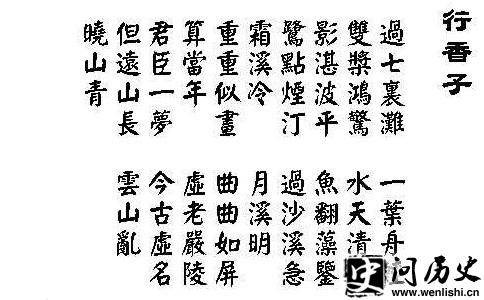 行香子
過七裏灘 一葉舟
雙槳鴻驚 水天清
影湛波平 魚翻藻鑒
鷺點煙汀 過沙溪急
霜溪冷 月溪明
重重似畫 曲曲如屏
算當年 虛老嚴陵
君臣一夢 今古虛名
但遠山長 雲山亂
曉山青
史问历史
www.wenlishi.cn